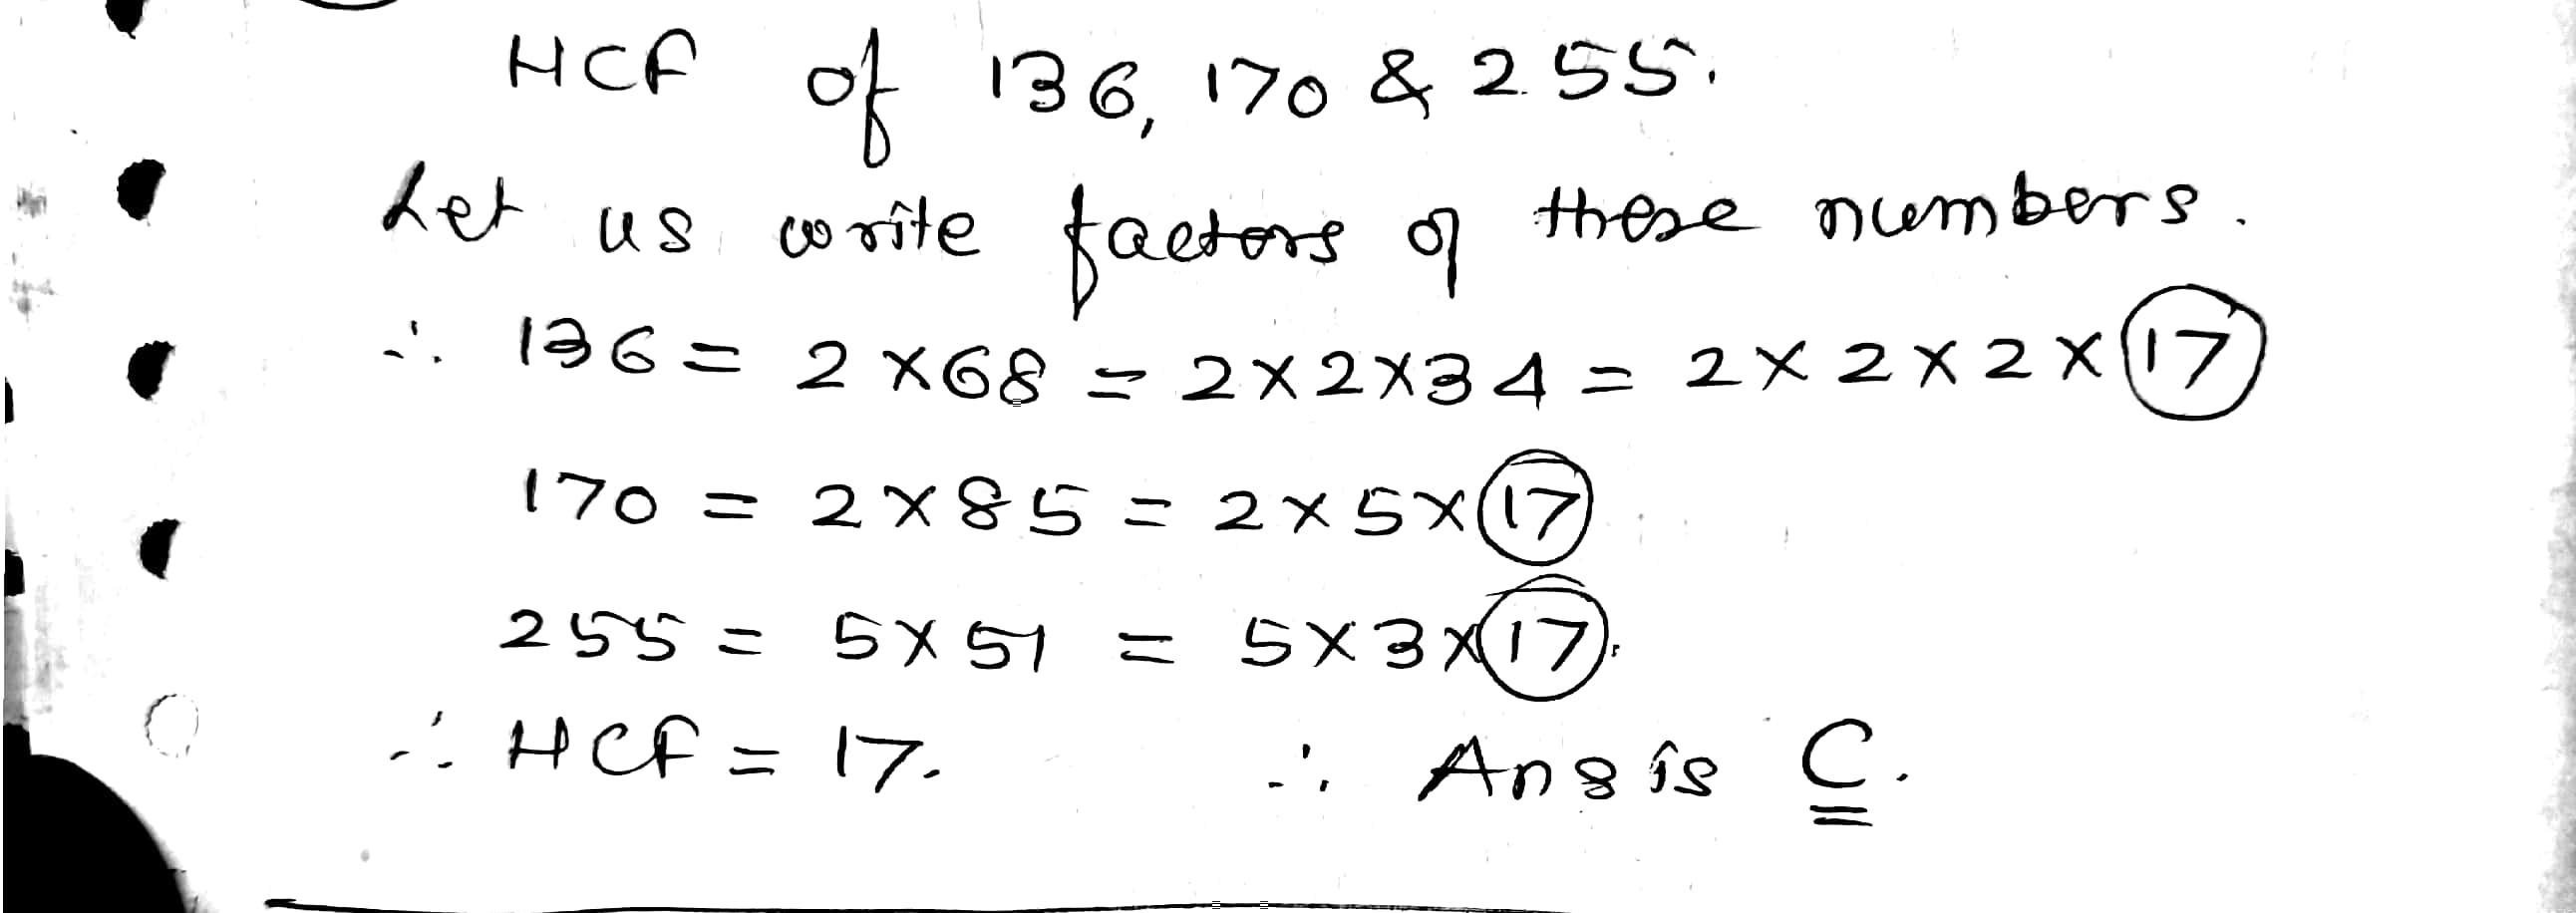 HCF of 136, 170 & 255.
Let us write factors of these numbers.
∴ 136 = 2 × 68 = 2 × 2 × 34 = 2 × 2 × 2 × 17
170 = 2 × 85 = 2 × 5 × 17
255 = 5 × 51 = 5 × 3 × 17.
∴ HCF = 17. ∴ Ans is C.